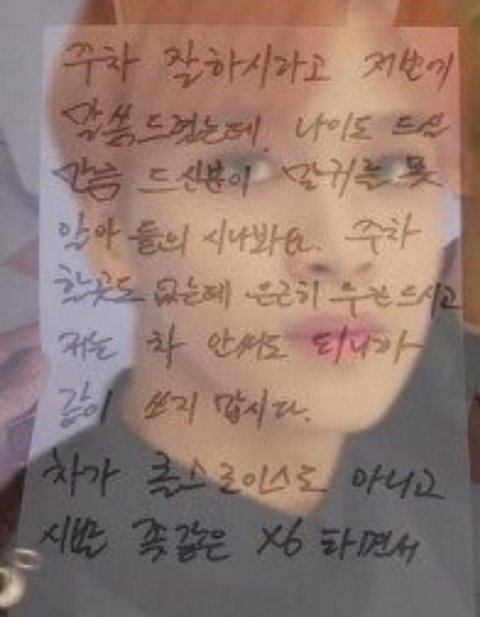 주차 잘하시라고 저번에
말씀드렸는데. 나이도 드신
만큼 드신분이 말귀를 못
알아 들의 시나봐요. 주차
할곳도 없는데 은근히 두칸드시고
저는 차 안써도 되니까
같이 쓰지 맙시다.
차가 롤스로이스도 아니고
시발 족같은 X6 타면서